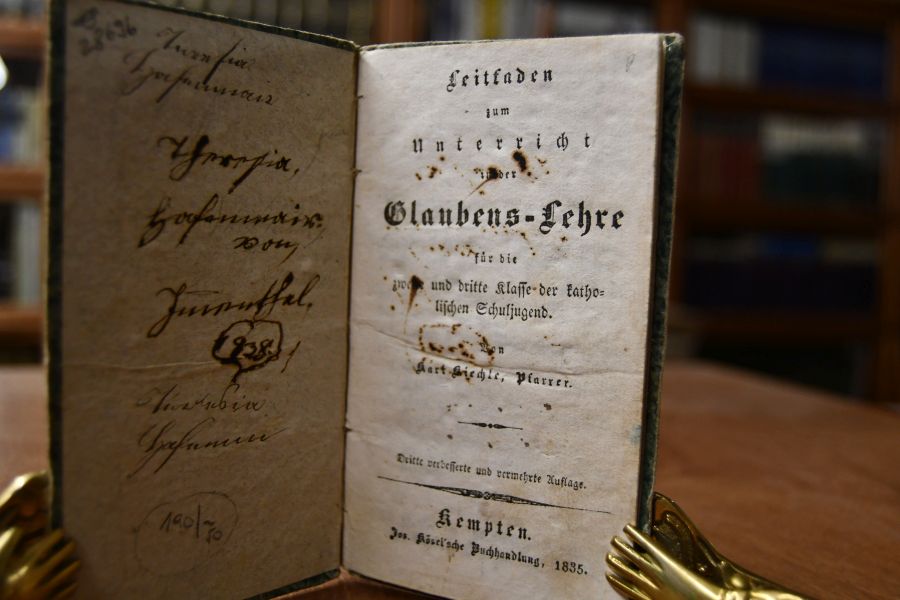 28636
Theresia
Hafenmair
Theresia,
Hafenmair.
von,
Immenthal.
1938.
Theresia
190/-
50
Leitfaden
zum
Unterricht
in der
Glaubens-Lehre
für die
zweite und dritte Klasse der katho-
lischen Schuljugend.
Von
Karl Kiechle, Pfarrer.
Dritte verbesserte und vermehrte Auflage.
Kempten.
Jos. Kösel'sche Buchhandlung, 1835.